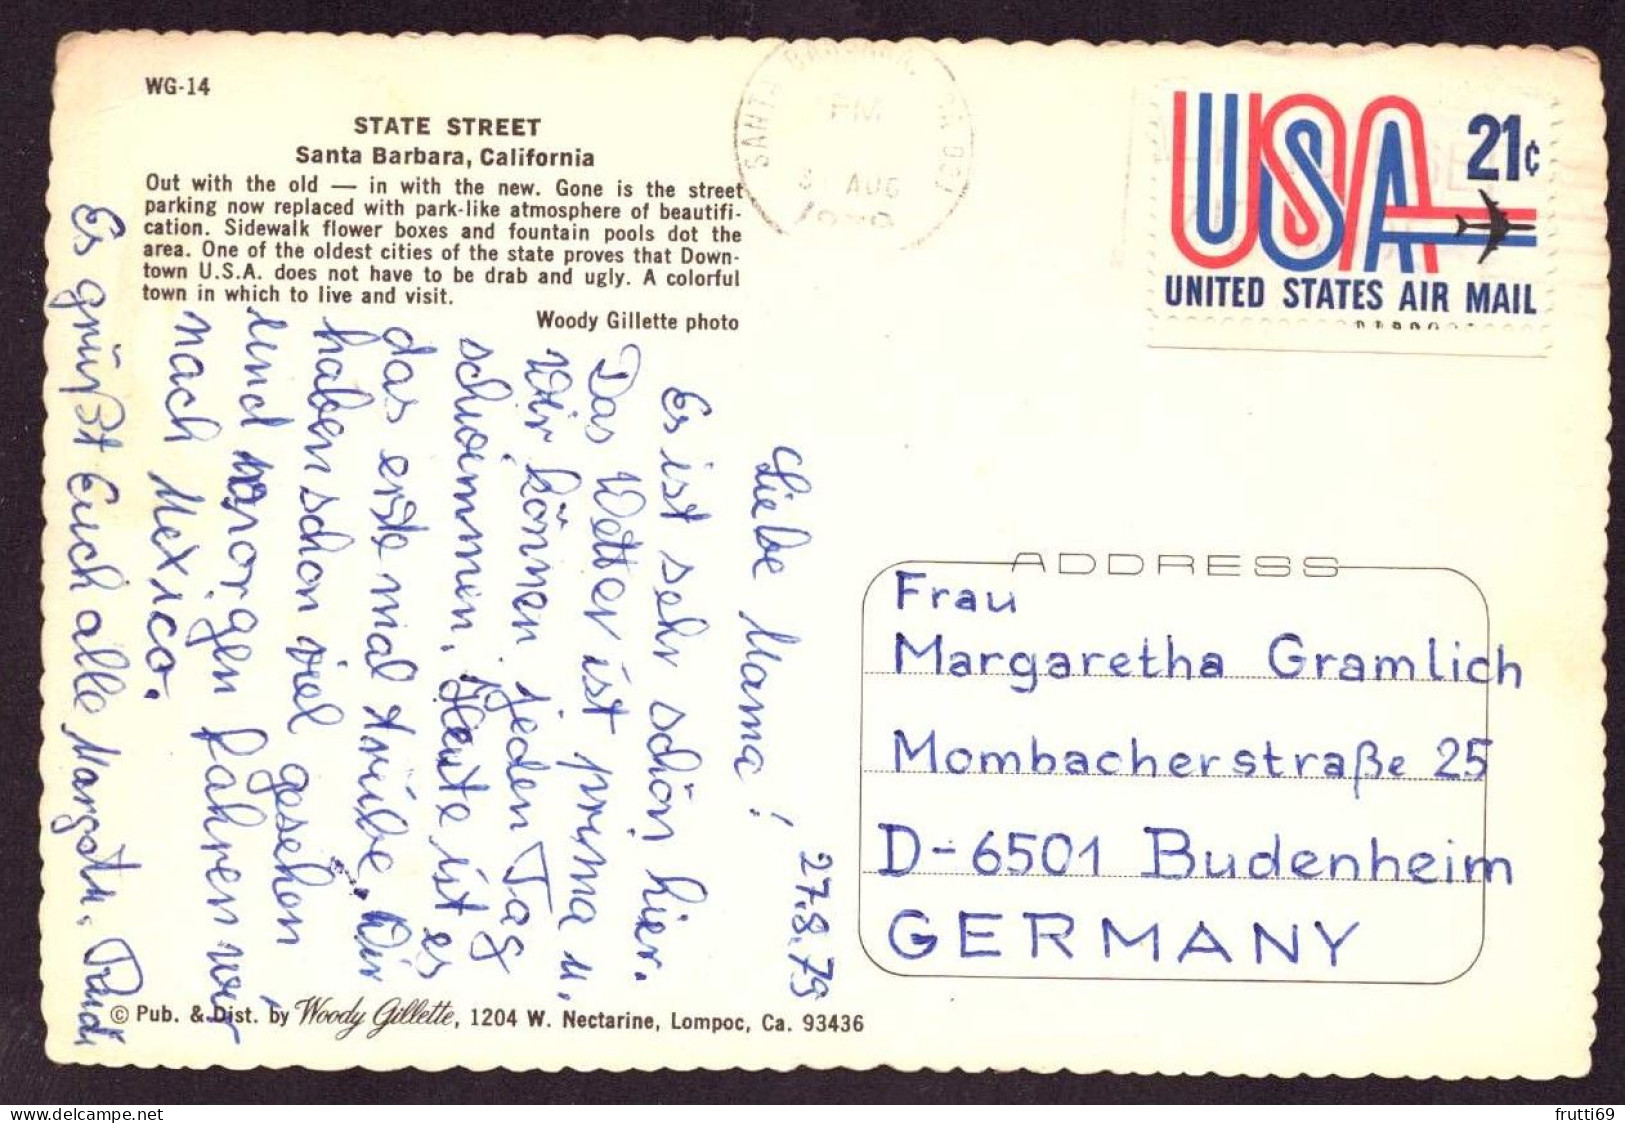 WG-14
STATE STREET
Santa Barbara, California
Out with the old — in with the new. Gone is the street
parking now replaced with park-like atmosphere of beautifi-
cation. Sidewalk flower boxes and fountain pools dot the
area. One of the oldest cities of the state proves that Down-
town U.S.A. does not have to be drab and ugly. A colorful
town in which to live and visit.
Woody Gillette photo
SANTA BARBARA, CA
PM
AUG
USA 21c
UNITED STATES AIR MAIL
27.8.79
Liebe Mama!
Es ist sehr schön hier.
Das Wetter ist prima u.
Wir können jeden Tag
schwimmen. Heute ist es
das erste mal trübe. Wir
haben schon viel gesehen
und morgen fahren wir
nach Mexico.
Es grüßt Euch alle Margot u. Rudi
ADDRESS
Frau
Margaretha Gramlich
Mombacherstraße 25
D-6501 Budenheim
GERMANY
© Pub. & Dist. by Woody Gillette, 1204 W. Nectarine, Lompoc, Ca. 93436
www.delcampe.net
frutti69